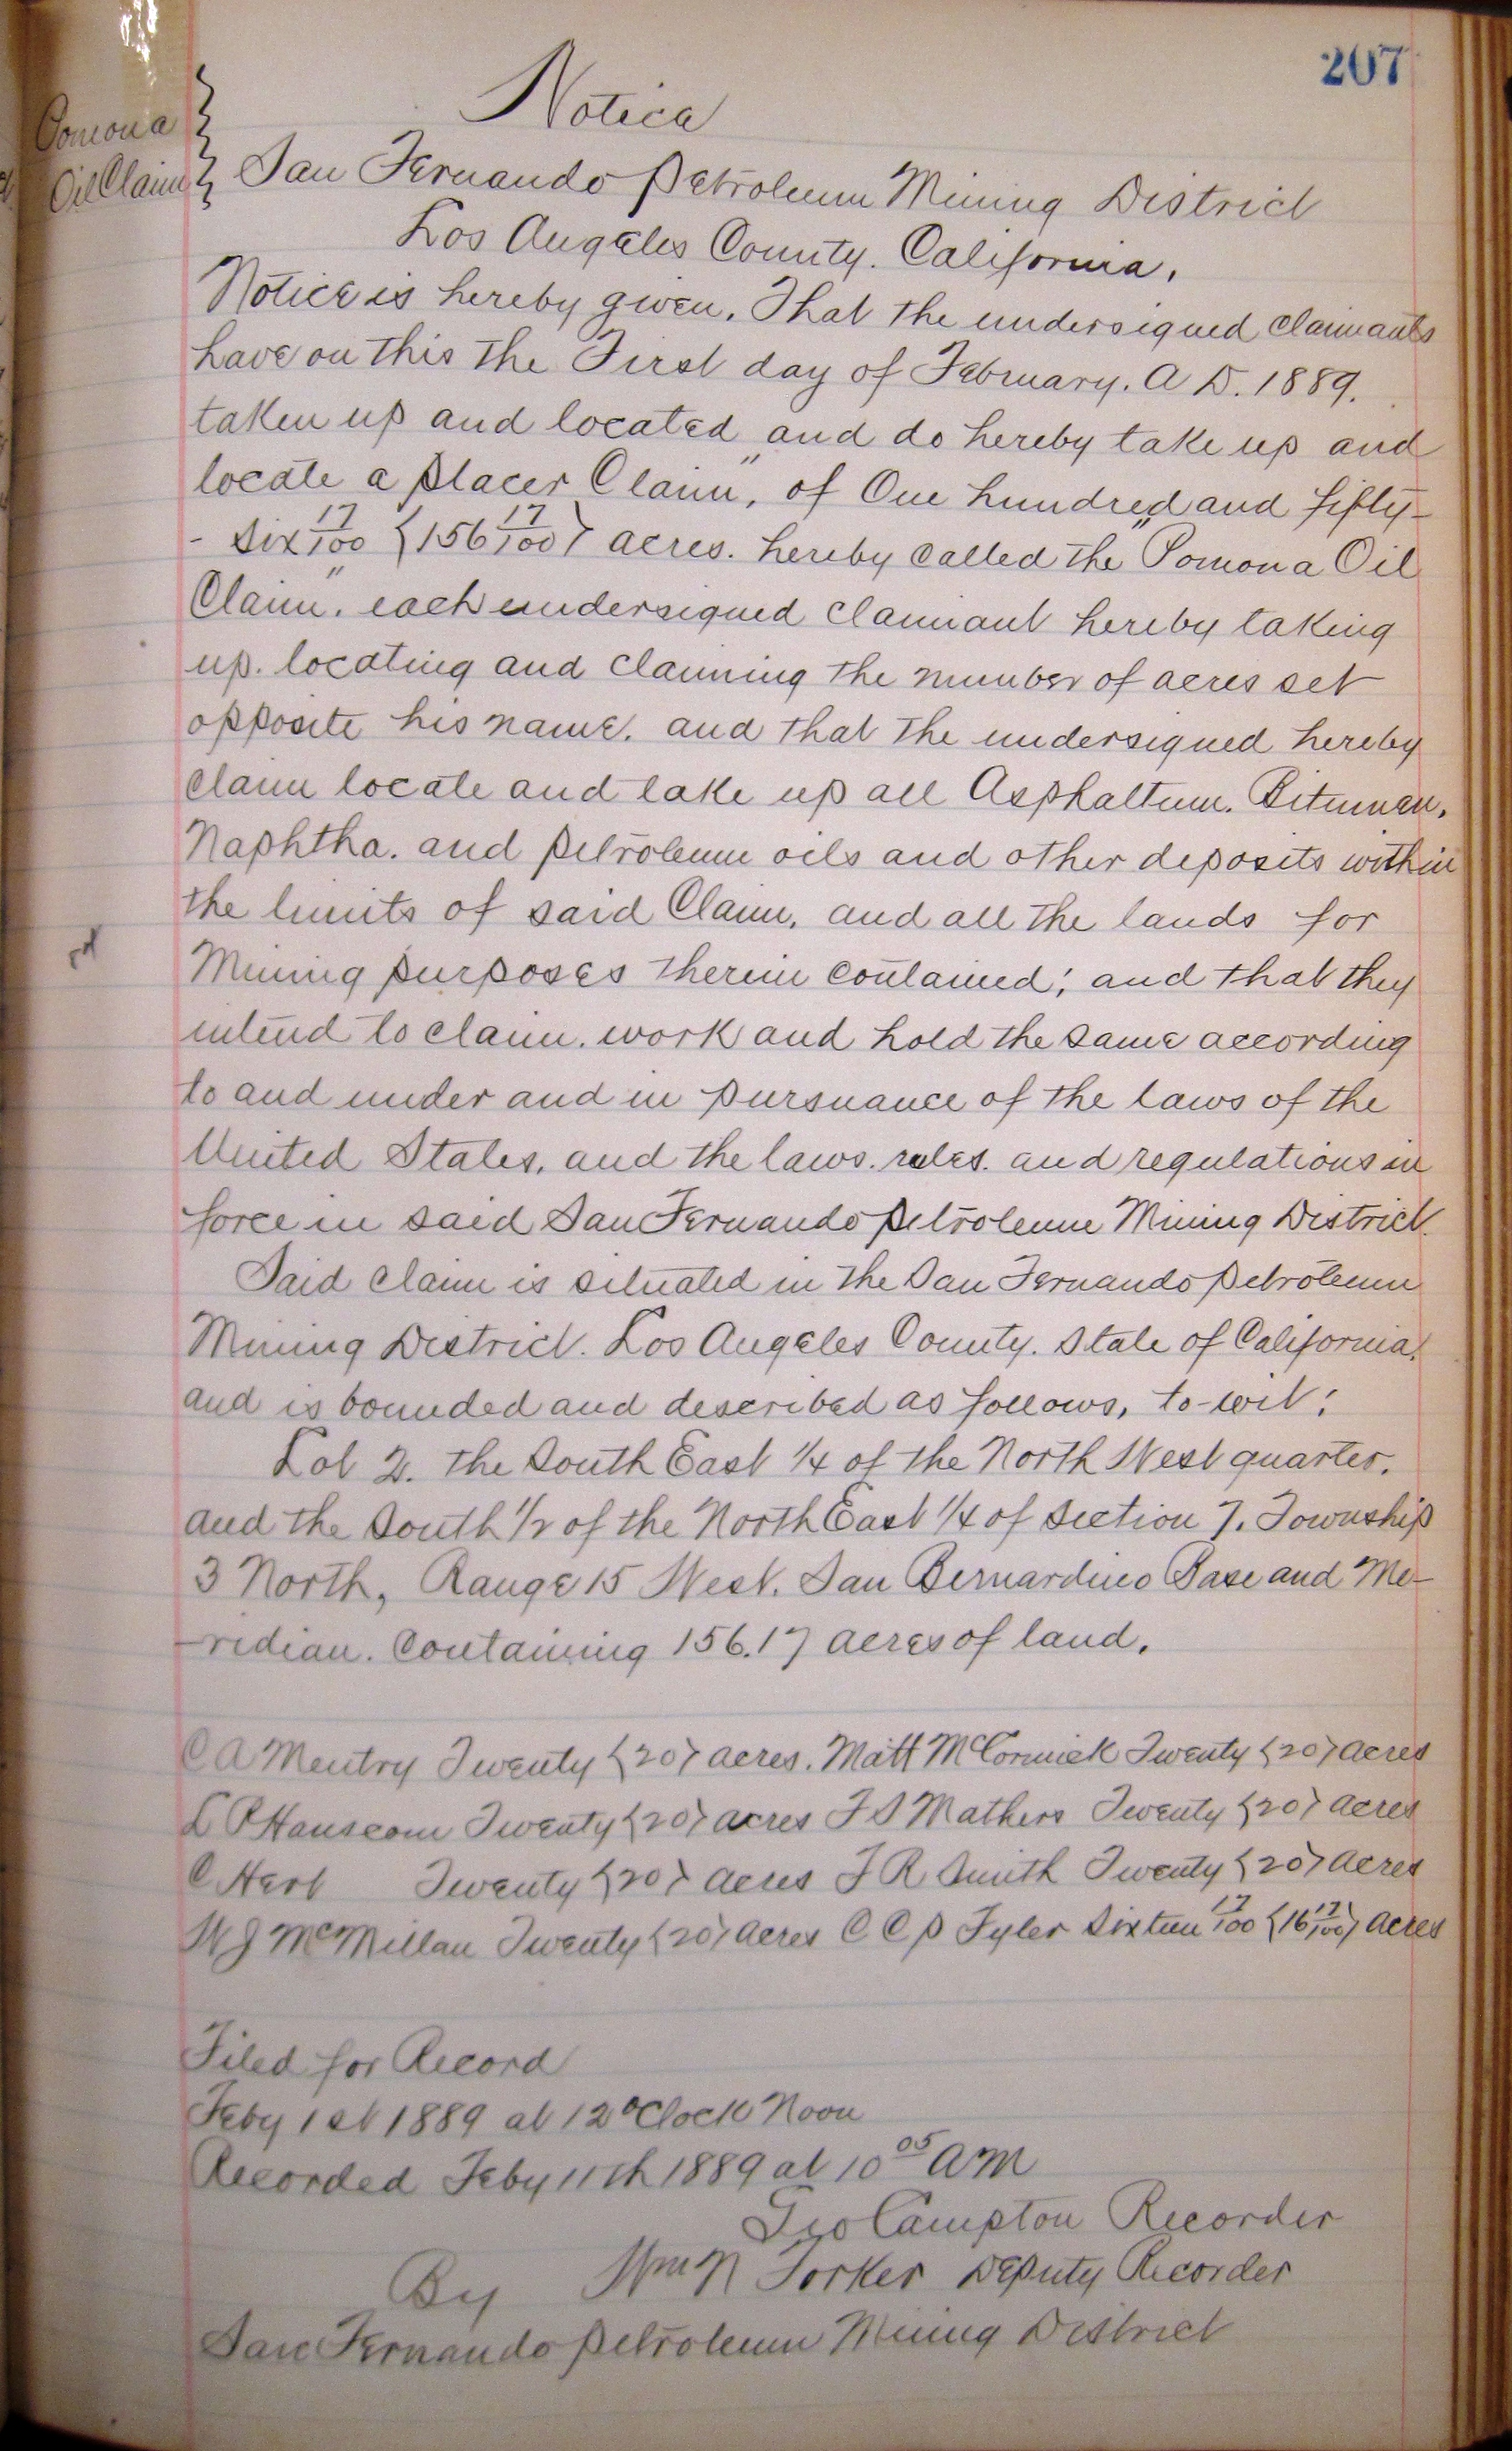 207
Pomona
Oil Claim
Notice
San Fernando Petroleum Mining District
Los Angeles County. California.
Notice is hereby given. That the undersigned claimants
have on this the First day of February. A D. 1889.
taken up and located and do hereby take up and
locate a Placer Claim", of One hundred and fifty-
- six 17/100 {156 17/100} acres. hereby called the "Pomona Oil
Claim". each undersigned claimant hereby taking
up. locating and claiming the number of acres set
opposite his name. and that the undersigned hereby
claim locate and take up all Asphaltum. Bitumen.
Naphtha. and petroleum oils and other deposits within
the limits of said Claim, and all the lands for
Mining purposes therein contained; and that they
intend to claim. work and hold the same according
to and under and in pursuance of the laws of the
United States, and the laws. rules. and regulations in
force in said San Fernando Petroleum Mining District.
Said claim is situated in the San Fernando Petroleum
Mining District. Los Angeles County. State of California.
and is bounded and described as follows, to-wit:
Lot 2. the South East 1/4 of the North West quarter.
and the South 1/2 of the North East 1/4 of Section 7. Township
3 North, Range 15 West. San Bernardino Base and Me-
-ridian. Containing 156.17 acres of land.
C A Mentry Twenty {20} acres. Matt McCormick Twenty {20} acres
L P Hanscom Twenty {20} acres F S Mathers Twenty {20} acres
C Hert Twenty {20} acres F R Smith Twenty {20} acres
W J McMillan Twenty {20} acres C C P Tyler Sixteen 17/100 {16 17/100} acres
Filed for Record
Feby 1st 1889 at 12 oClock Noon
Recorded Feby 11th 1889 at 10 05 AM
Geo Campton Recorder
By Wm N Forker Deputy Recorder
San Fernando Petroleum Mining District